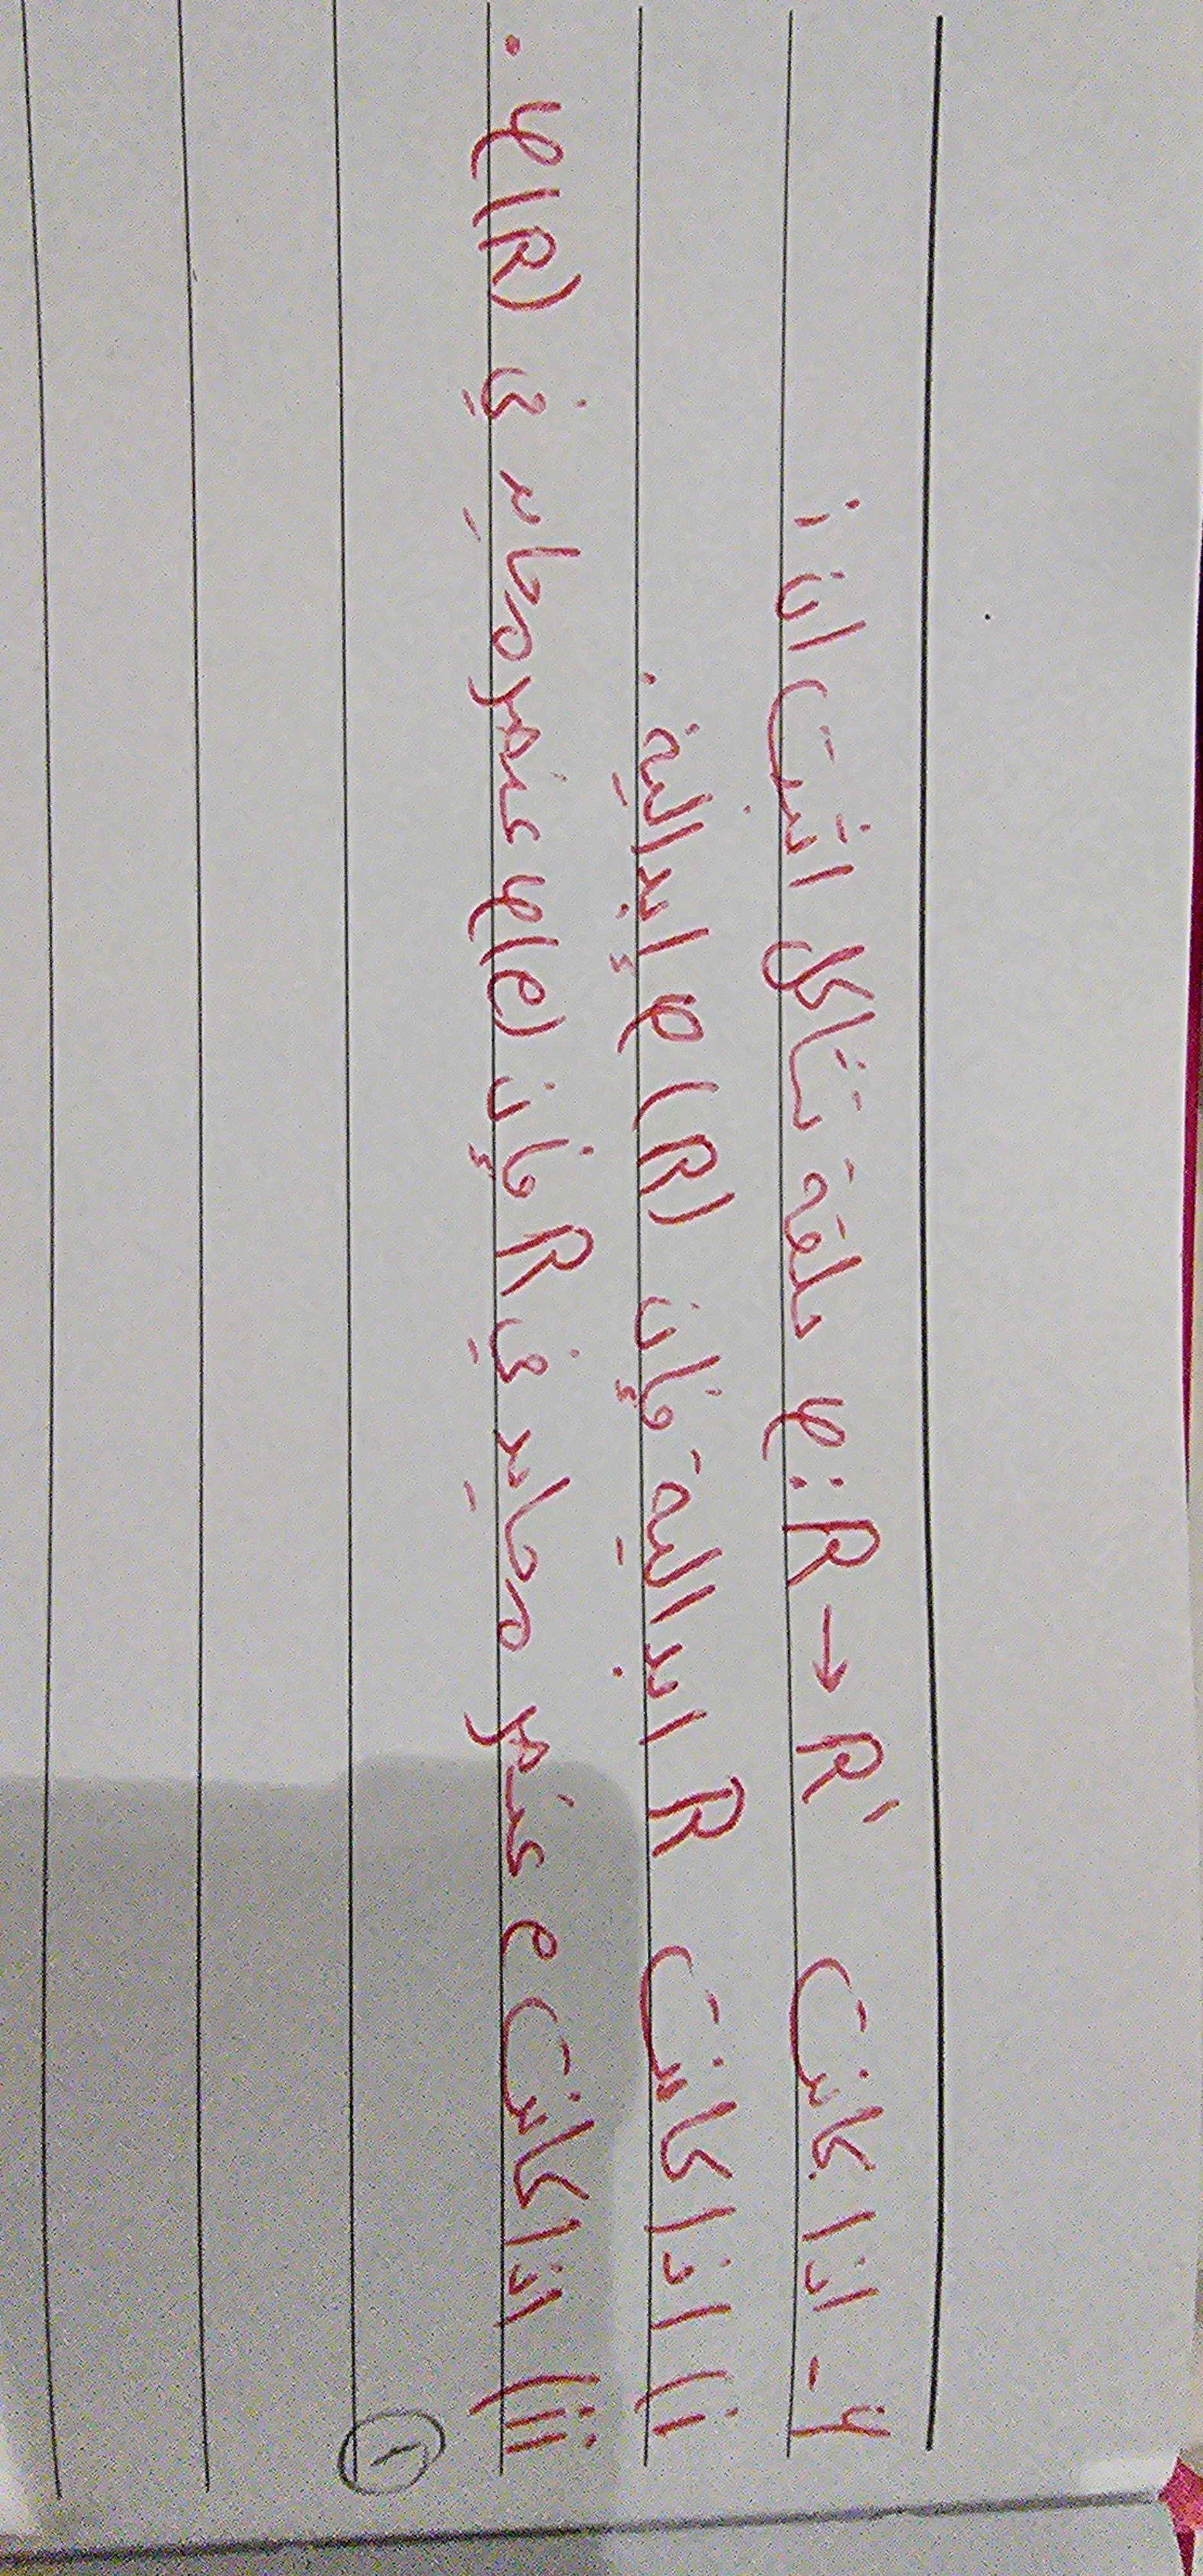 ٤- اذا كانت φ: R → R' حلقة تشاكل اثبت ان :
i) اذا كانت R ابدالية فإن φ(R) إبدالية .
ii) اذا كانت e عنصر محايد في R فإن φ(e) عنصر محايد في φ(R) .